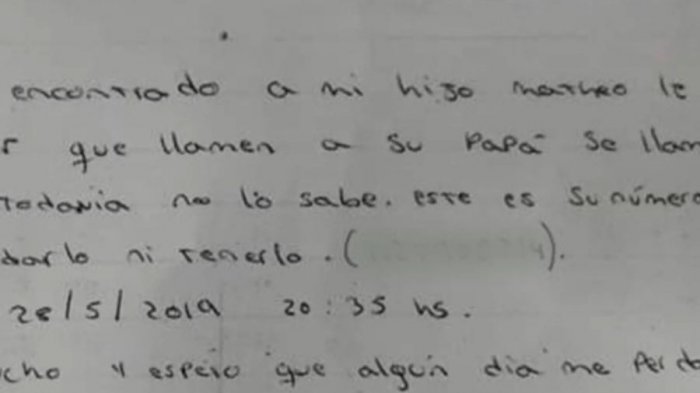 encontrado a mi hijo matheo le
r que llamen a su papá se llam
todavia no lo sabe. este es su número
darlo ni tenerlo. ( ).
28/5/2019 20:35 hs.
cho y espero que algún dia me perdo